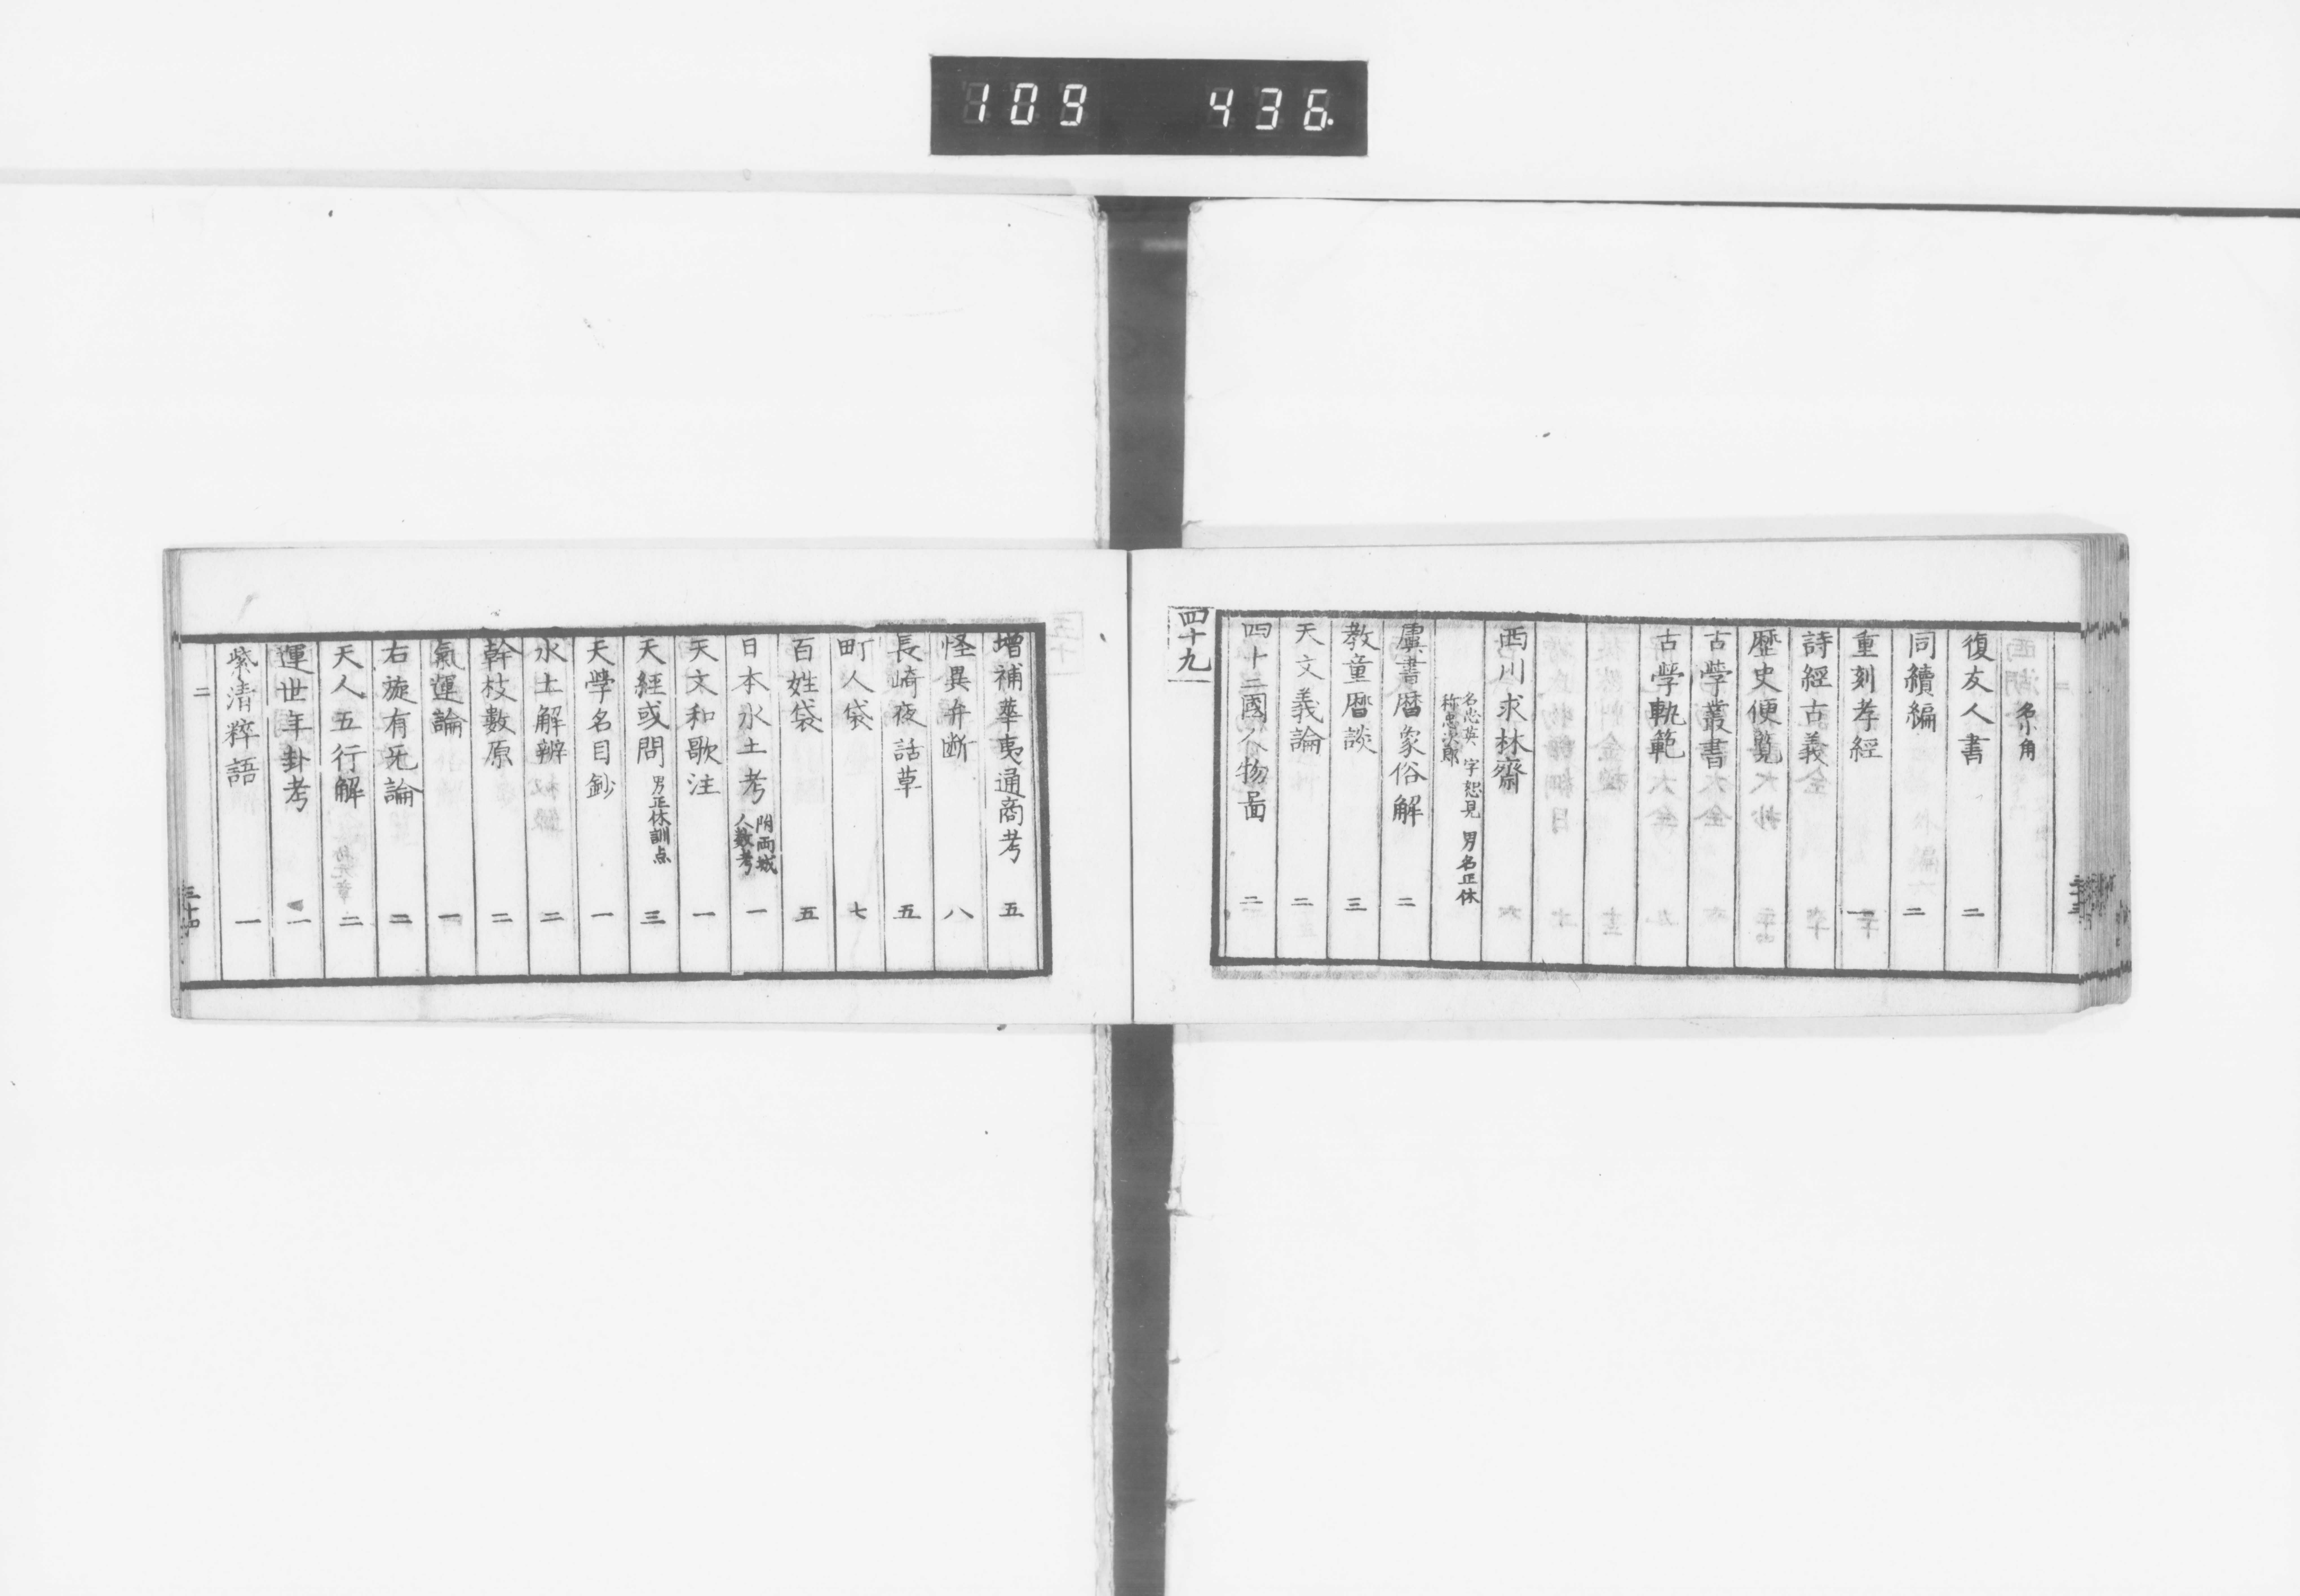 109 436
名角
復友人書 二
同續編 二
重刻孝經 一
詩經古義
歷史便覧
古學叢書
古學軌範
西川求林齋
名忠英 字恕見 男名正休
称忠次郎
虞書暦象俗解 二
教童暦談 三
天文義論 二
四十二國人物啚 二
四十九
增補華夷通商考 五
怪異弁断 八
長崎夜話草 五
町人袋 七
百姓袋 五
日本水土考 附両城人数考 一
天文和歌注 一
天経或問 男正休訓点 三
天學名目鈔 一
水土解辨 二
幹枝數原 二
氣運論 一
右旋有无論 二
天人五行解 二
運世年卦考 二
紫清粹語 一
二
三十四